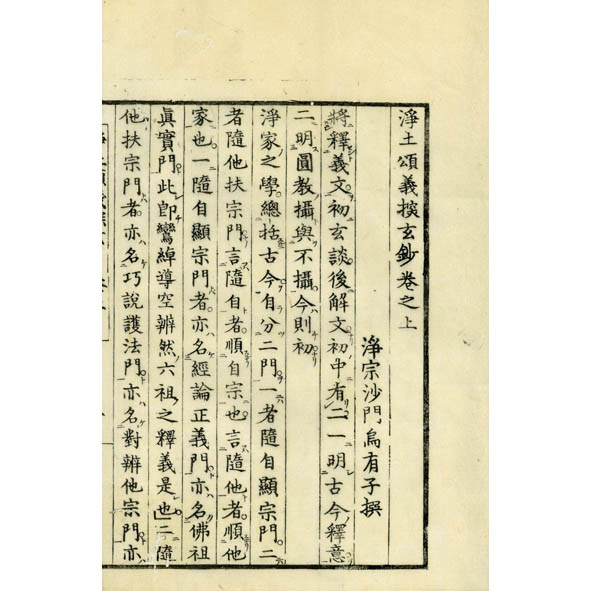 淨土頌義探玄鈔卷之上
淨宗沙門烏有子撰
將釋義文初玄談後解文初中有二一明古今釋意
二明圓教攝與不攝今則初
淨家之學總括古今自分二門一者隨自顯宗門二
者隨他扶宗門言隨自者順自宗也言隨他者順他
家也一隨自顯宗門者亦名經論正義門亦名佛祖
眞實門此卽鸞綽導空辨然六祖之釋義是也二隨
他扶宗門者亦名巧說護法門亦名對辨他宗門亦